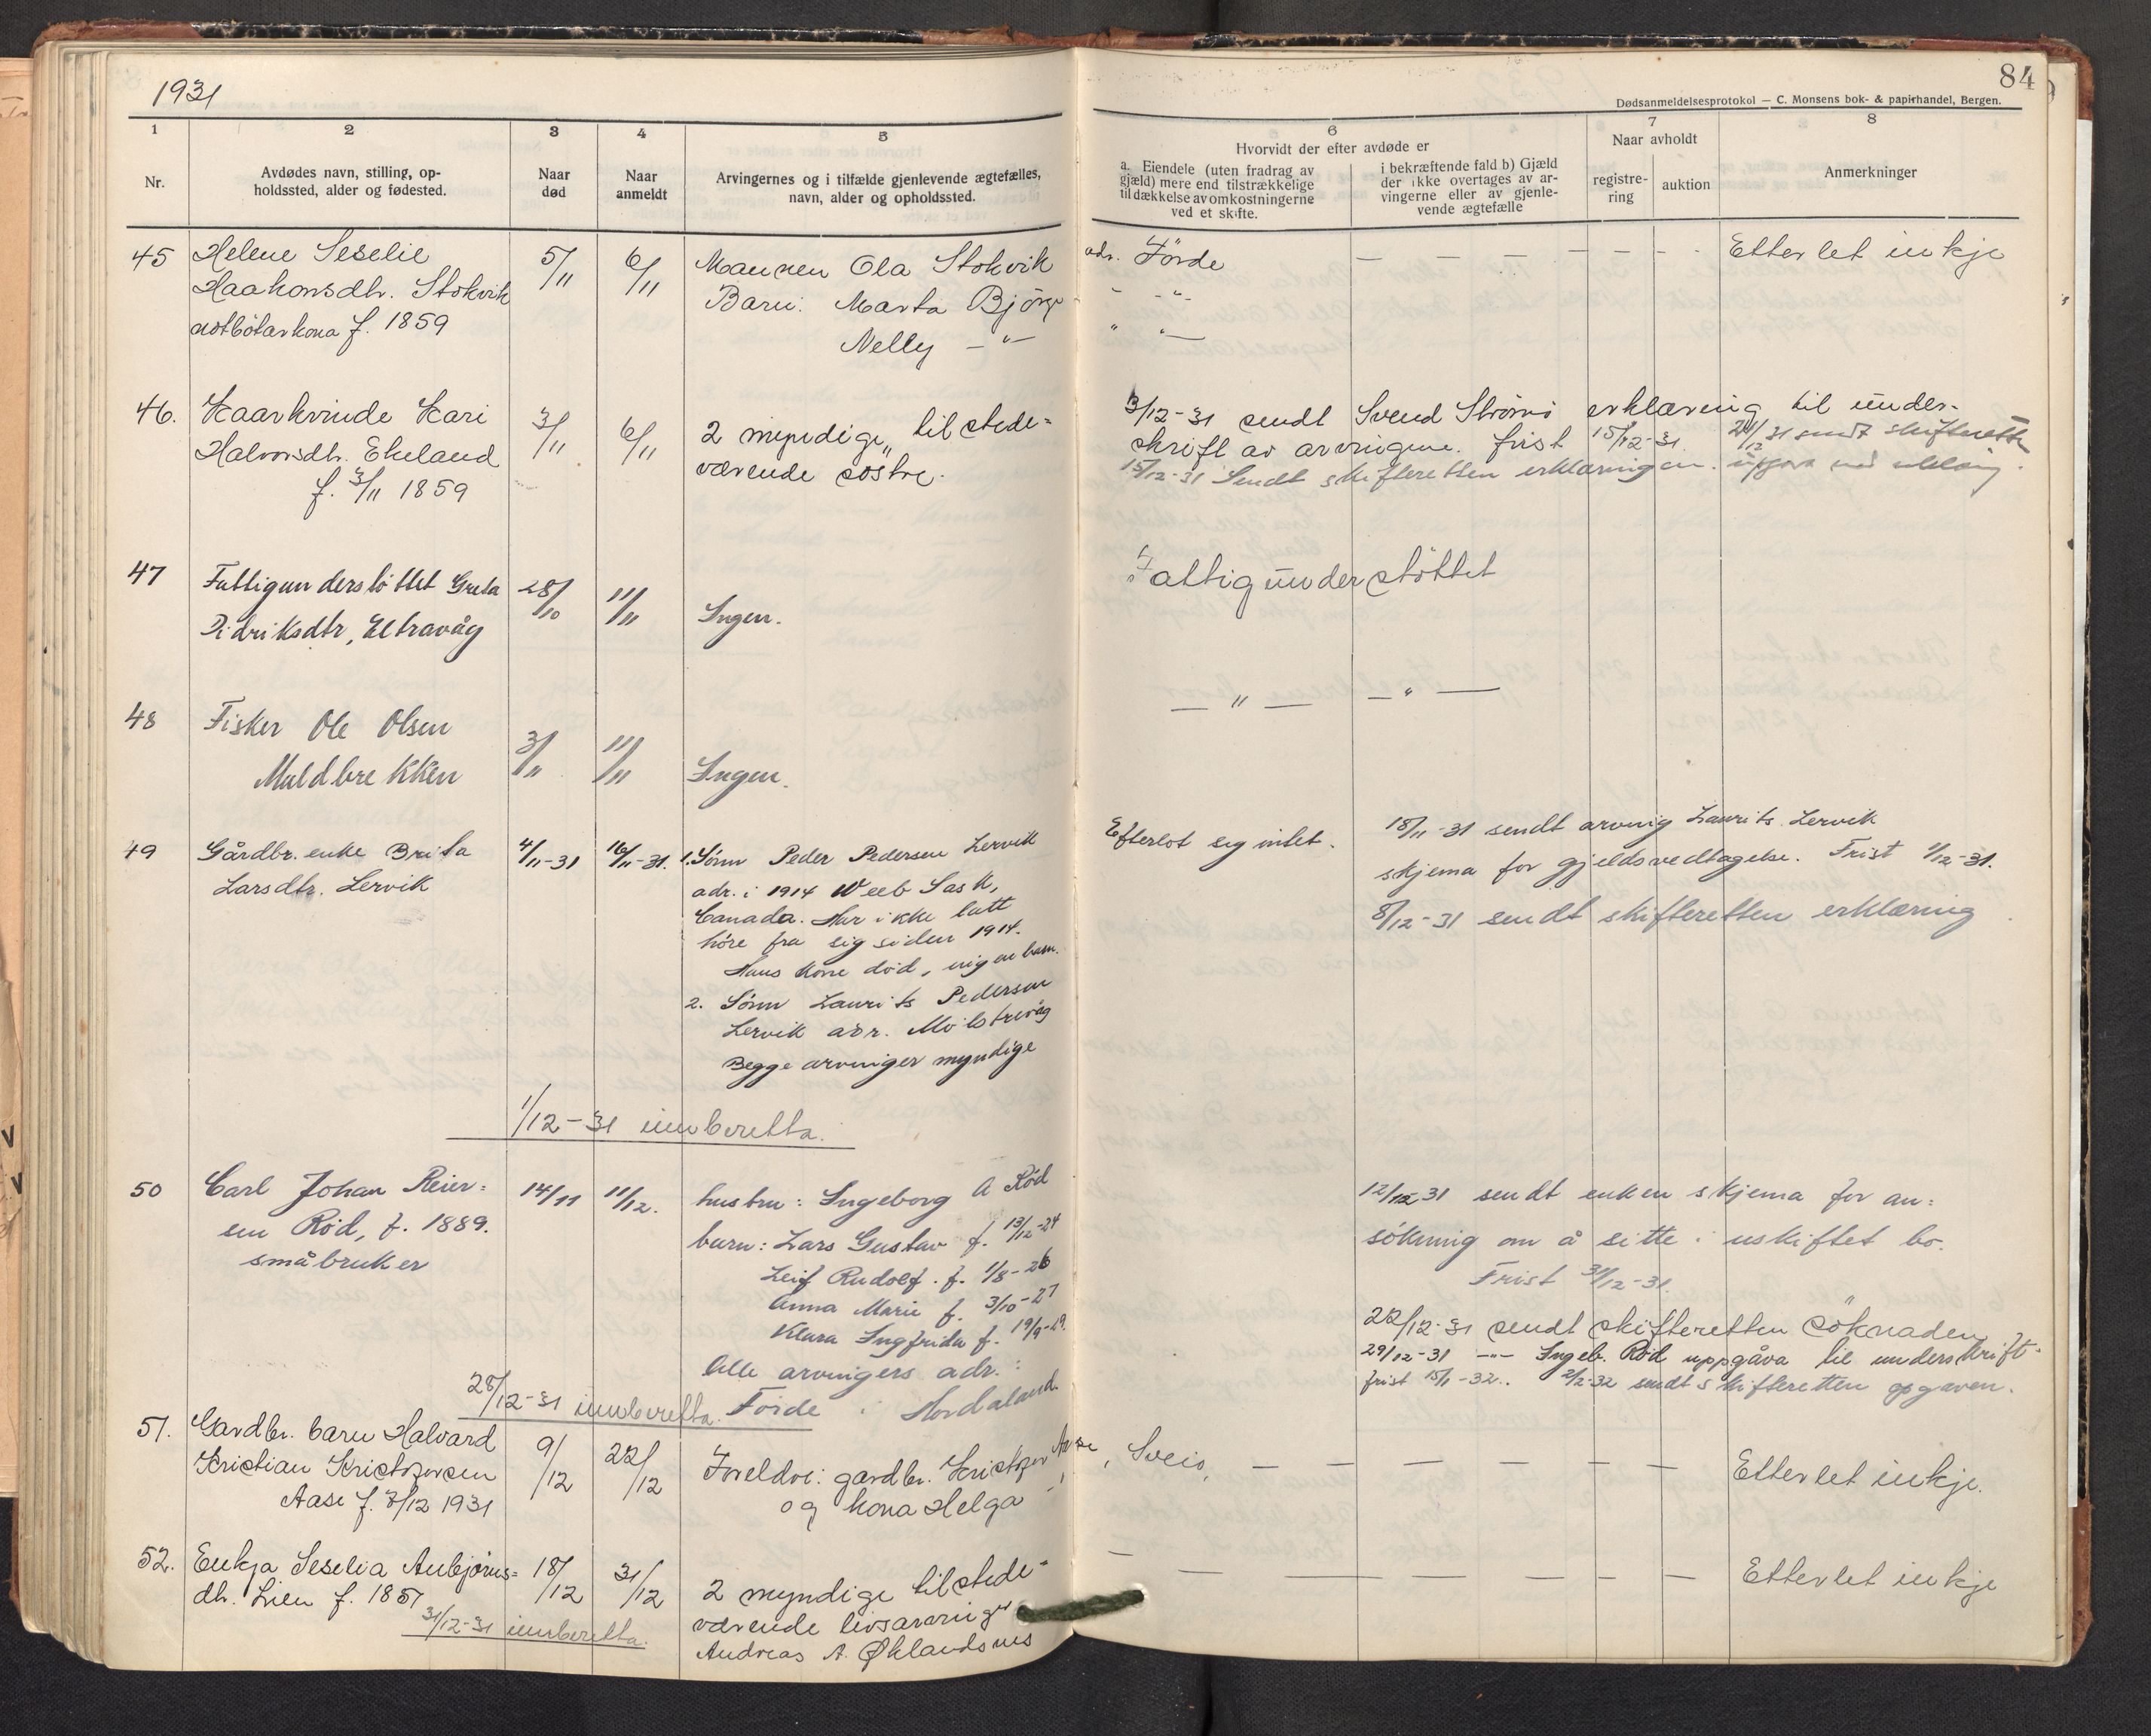 1931
84
Dødsanmeldelsesprotokol — C. Monsens bok- & papirhandel, Bergen.
1
2
3
4
5
6
7
8
Nr.
Avdødes navn, stilling, op-
holdssted, alder og fødested.
Naar
død
Naar
anmeldt
Arvingernes og i tilfælde gjenlevende ægtefælles,
navn, alder og opholdssted.
Hvorvidt der efter avdøde er
a. Eiendele (uten fradrag av
gjæld) mere end tilstrækkelige
til dækkelse av omkostningerne
ved et skifte.
i bekræftende fald b) Gjæld
der ikke overtages av ar-
vingerne eller av gjenle-
vende ægtefælle
Naar avholdt
registre-
ring
auktion
Anmerkninger
45
Helene Seselie
Haakonsdtr. Stokvik
notbøtarkona f. 1859
5/11
6/11
Mannen Ola Stokvik
Barn: Marta Bjørge
Nelly — " —
adr. Förde
- - " -
" " —
— — — — — — - -
Etterlet inkje
46.
Kaarkvinde Kari
Halvorsdtr. Ekeland
f. 3/11 1859
3/11
6/11
2 myndige, tilstede=
værende søstre.
3/12-31 sendt Svend Strömö erklæring til under-
skrift av arvingene. frist 15/12-31.
15/12-31 Sendt skifteretten erklæringen.
21/12 31 sendt skifteretten
47
Fattigunderstøttet Greta
Didriksdtr, Eltravåg
28/10
11/11
Ingen.
Fattigunderstöttet
48
Fisker Ole Olsen
Muldbrekken
3/11
11/11
Ingen.
— " — — " —
49
Gårdbr. enke Brita
Larsdtr. Lervik
4/11-31
16/11-31.
1. Sønn Peder Pedersen Lervik
adr. i 1914 Weeb Sask,
Canada. Har ikke latt
høre fra sig siden 1914.
Hans kone død, ingen barn.
2. Sønn Laurits Pedersen
Lervik adr. Mølstrevåg
Begge arvinger myndige
Efterlot sig intet.
18/11-31 sendt arving Laurits Lervik
skjema for gjeldsvedtagelse. Frist 1/12-31.
8/12-31 sendt skifteretten erklæring
1/12-31 innberetta.
50
Carl Johan Reier=
sen Rød, f. 1889.
småbruker
14/11
11/12.
hustru: Ingeborg A Rød
barn: Lars Gustav f. 13/12-24
Leif Rudolf. f. 1/8-26
Anna Marie f. 3/10-27
Klara Ingfrida f. 19/9-29.
Alle arvingers adr.:
Førde i Hordaland.
12/12 31 sendt enken skjema for an=
søkning om å sitte i uskiftet bo.
Frist 31/12-31.
22/12-31 sendt skifteretten söknaden
29/12-31 -"- Ingeb. Rød uppgåva til underskrift.
frist 15/1-32. 2/2-32 sendt skifteretten opgaven.
28/12-31 innberetta.
51.
Gardbr. barn Halvard
Kristian Kristofersen
Aase f. 7/12 1931
9/12
22/12
Foreldre: gardbr. Kristofer Aase, Sveio,
og kona Helga - "
— — — — — — —
Etterlet inkje.
52.
Enkja Seselia Anbjørns=
dtr. Lien f. 1857
18/12
31/12
2 myndige tilstede=
værende livsarvinger
Andreas A. Øklandsnes
— — — — — — —
Etterlet inkje
31/12-31 innberetta.